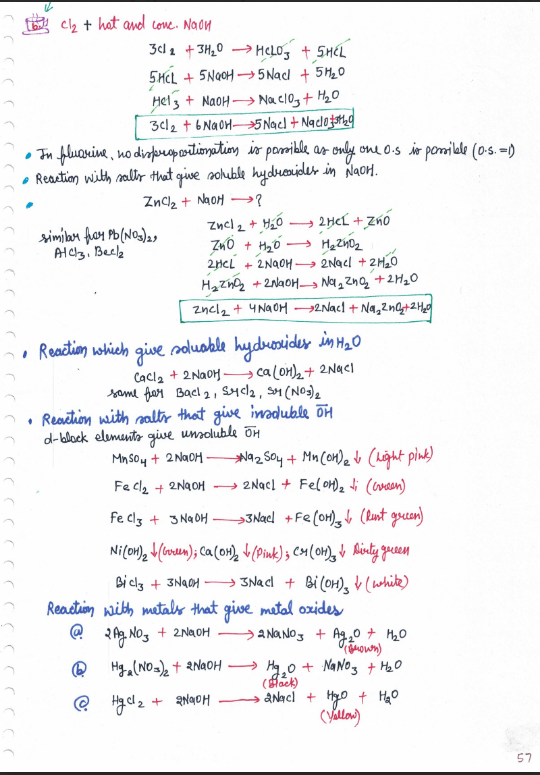 (b) Cl2 + hot and conc. NaOH
3Cl2 + 3H2O → HClO3 + 5HCl
5HCl + 5NaOH → 5NaCl + 5H2O
HCl3 + NaOH → NaClO3 + H2O
3Cl2 + 6NaOH → 5NaCl + NaClO3 + 3H2O
• In fluorine, no disproportionation is possible as only one o.s is possible (o.s. = 1)
• Reaction with salts that give soluble hydroxides in NaOH.
• ZnCl2 + NaOH → ?
ZnCl2 + H2O → 2HCl + ZnO
similar for Pb(NO3)2,
AlCl3, BeCl2
ZnO + H2O → H2ZnO2
2HCl + 2NaOH → 2NaCl + 2H2O
H2ZnO2 + 2NaOH → Na2ZnO2 + 2H2O
ZnCl2 + 4NaOH → 2NaCl + Na2ZnO2 + 2H2O
• Reaction which give soluable hydroxides in H2O
CaCl2 + 2NaOH → Ca(OH)2 + 2NaCl
same for BaCl2, SrCl2, Sr(NO3)2
• Reaction with salts that give insoluble OH̅
d-block elements give unsoluble OH̅
MnSO4 + 2NaOH → Na2SO4 + Mn(OH)2 ↓ (Light pink)
FeCl2 + 2NaOH → 2NaCl + Fe(OH)2 ↓; (Green)
FeCl3 + 3NaOH → 3NaCl + Fe(OH)3 ↓ (Rust green)
Ni(OH)2 ↓ (Green); Co(OH)2 ↓ (Pink); Cr(OH)3 ↓ Dirty green
BiCl3 + 3NaOH → 3NaCl + Bi(OH)3 ↓ (white)
Reaction with metals that give metal oxides
(a) 2AgNO3 + 2NaOH → 2NaNO3 + Ag2O + H2O
(Brown)
(b) Hg2(NO3)2 + 2NaOH → Hg2O + NaNO3 + H2O
(Black)
(c) HgCl2 + 2NaOH → 2NaCl + HgO + H2O
(Yellow)
57